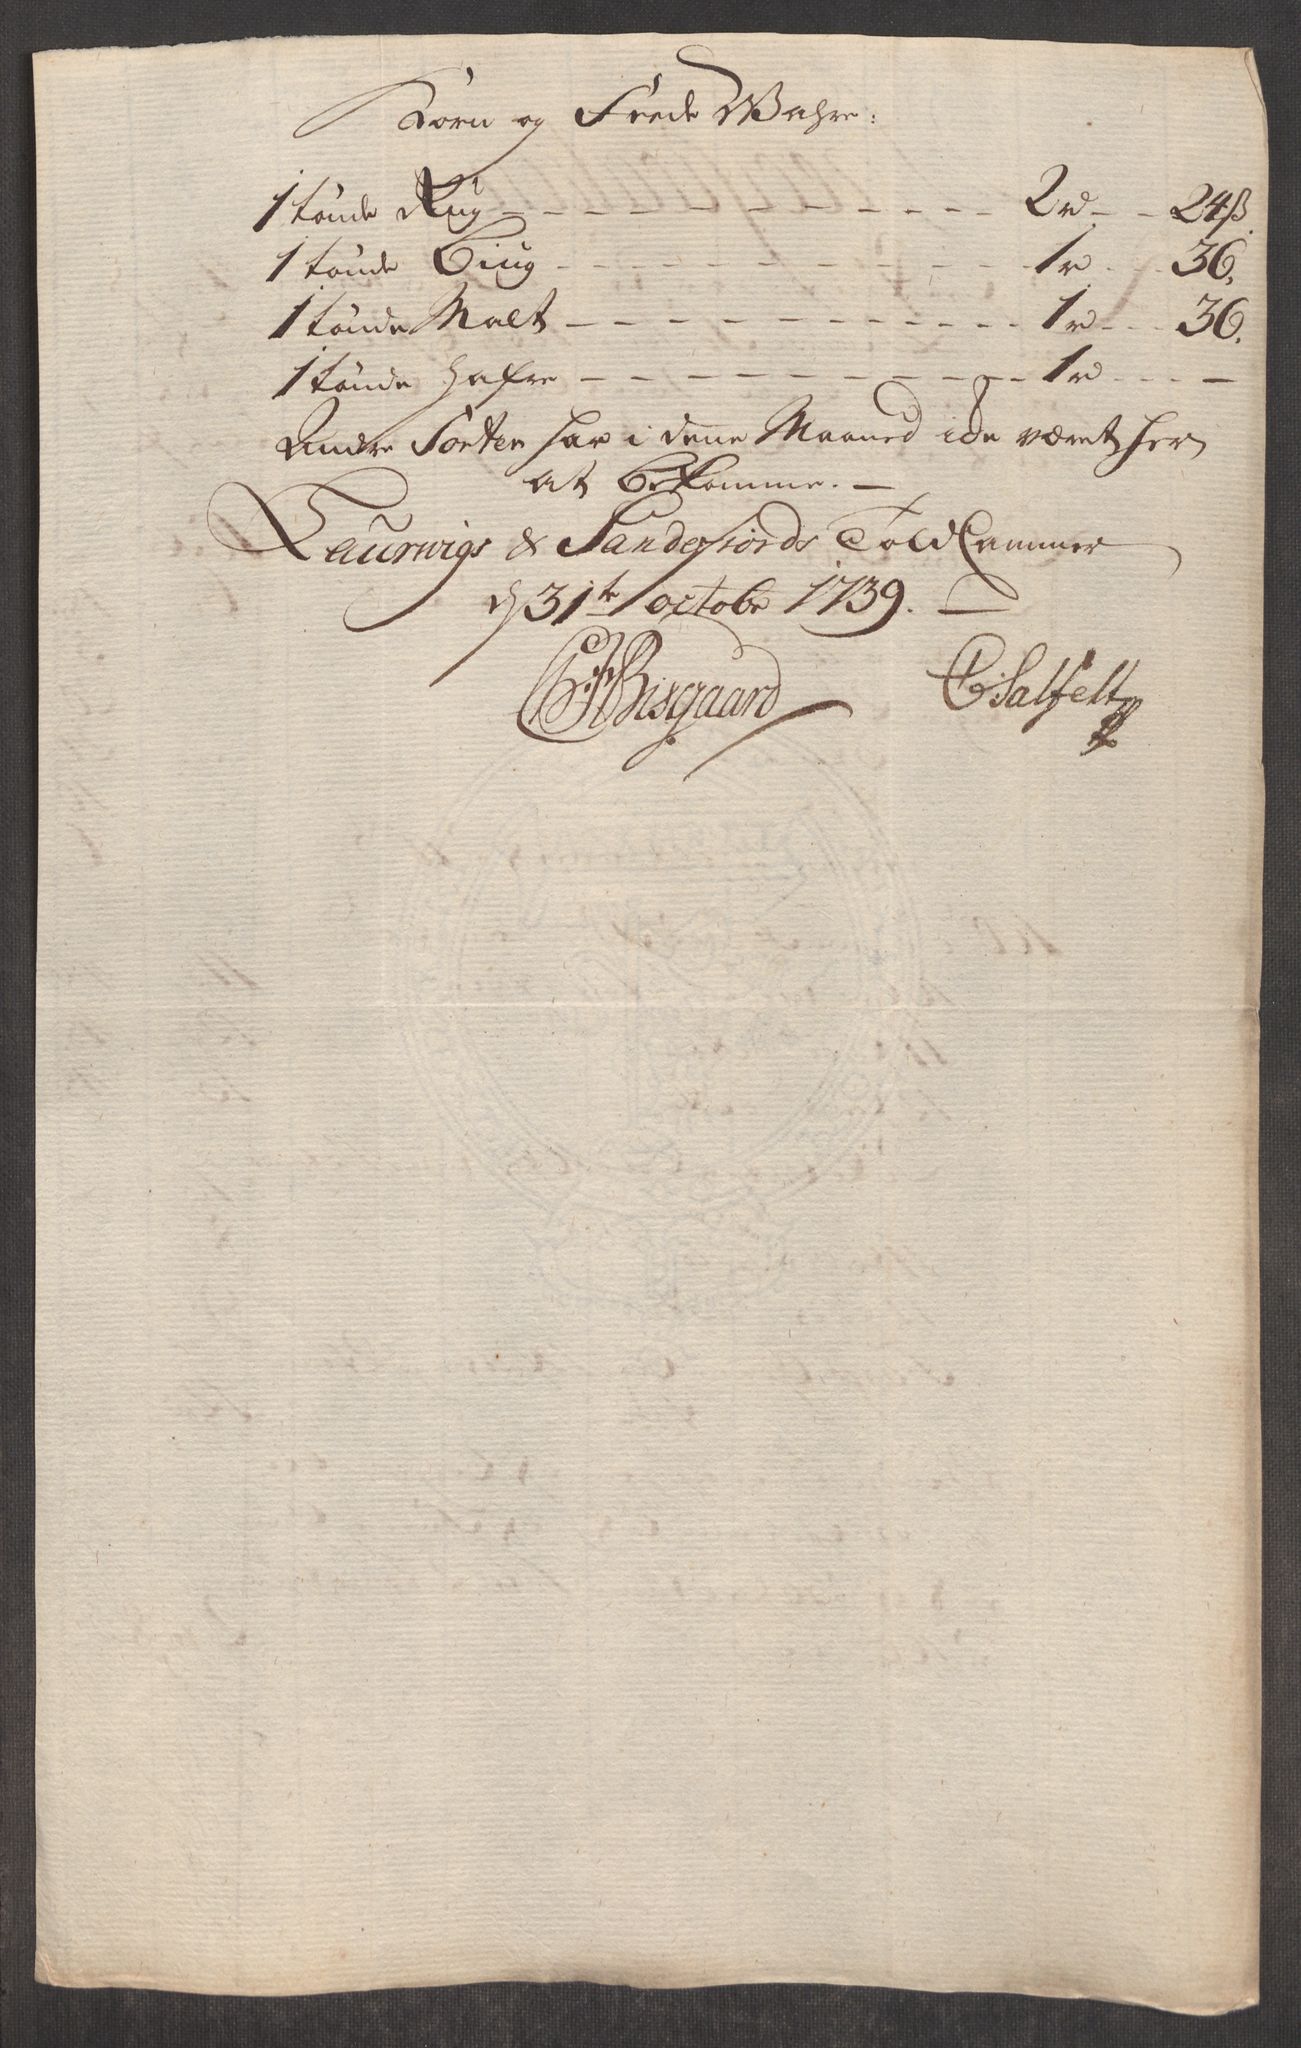 Korn og Feede Wahre:
1 tønde Rug - - - - - - - - - - - - 2 rd. - - 24 ß.
1 tønde Biug - - - - - - - - - - - - 1 r - - 36.
1 tønde Malt - - - - - - - - - - - - 1 r - - 36.
1 tønde Hafre - - - - - - - - - - - - 1 r - - -
Andre Sorter har i denne Maaned icke været her
at bekomme. -
Laurwigs & Sandefiords Told Cammer
d 31te octobr 1739. -
Bisgaard C Salfelt